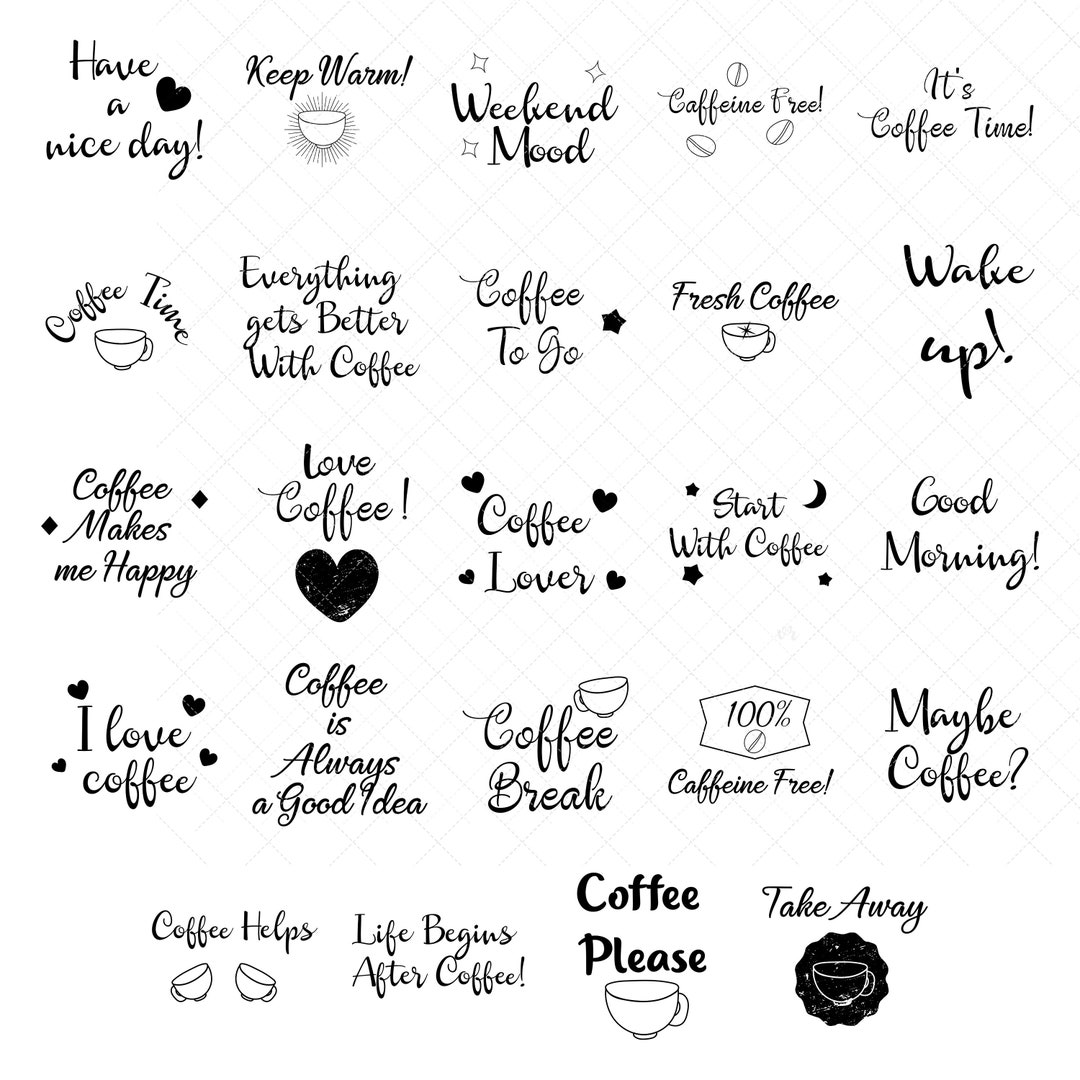 Have
a
nice day!
Keep Warm!
Weekend
Mood
Caffeine Free!
It's
Coffee Time!
Coffee Time
Everything
gets Better
With Coffee
Coffee
To Go
Fresh Coffee
Wake
up!
Coffee
Makes
me Happy
Love
Coffee!
Coffee
Lover
Start
With Coffee
Good
Morning!
I love
coffee
Coffee
is
Always
a Good Idea
Coffee
Break
100%
Caffeine Free!
Maybe
Coffee?
Coffee Helps
Life Begins
After Coffee!
Coffee
Please
Take Away